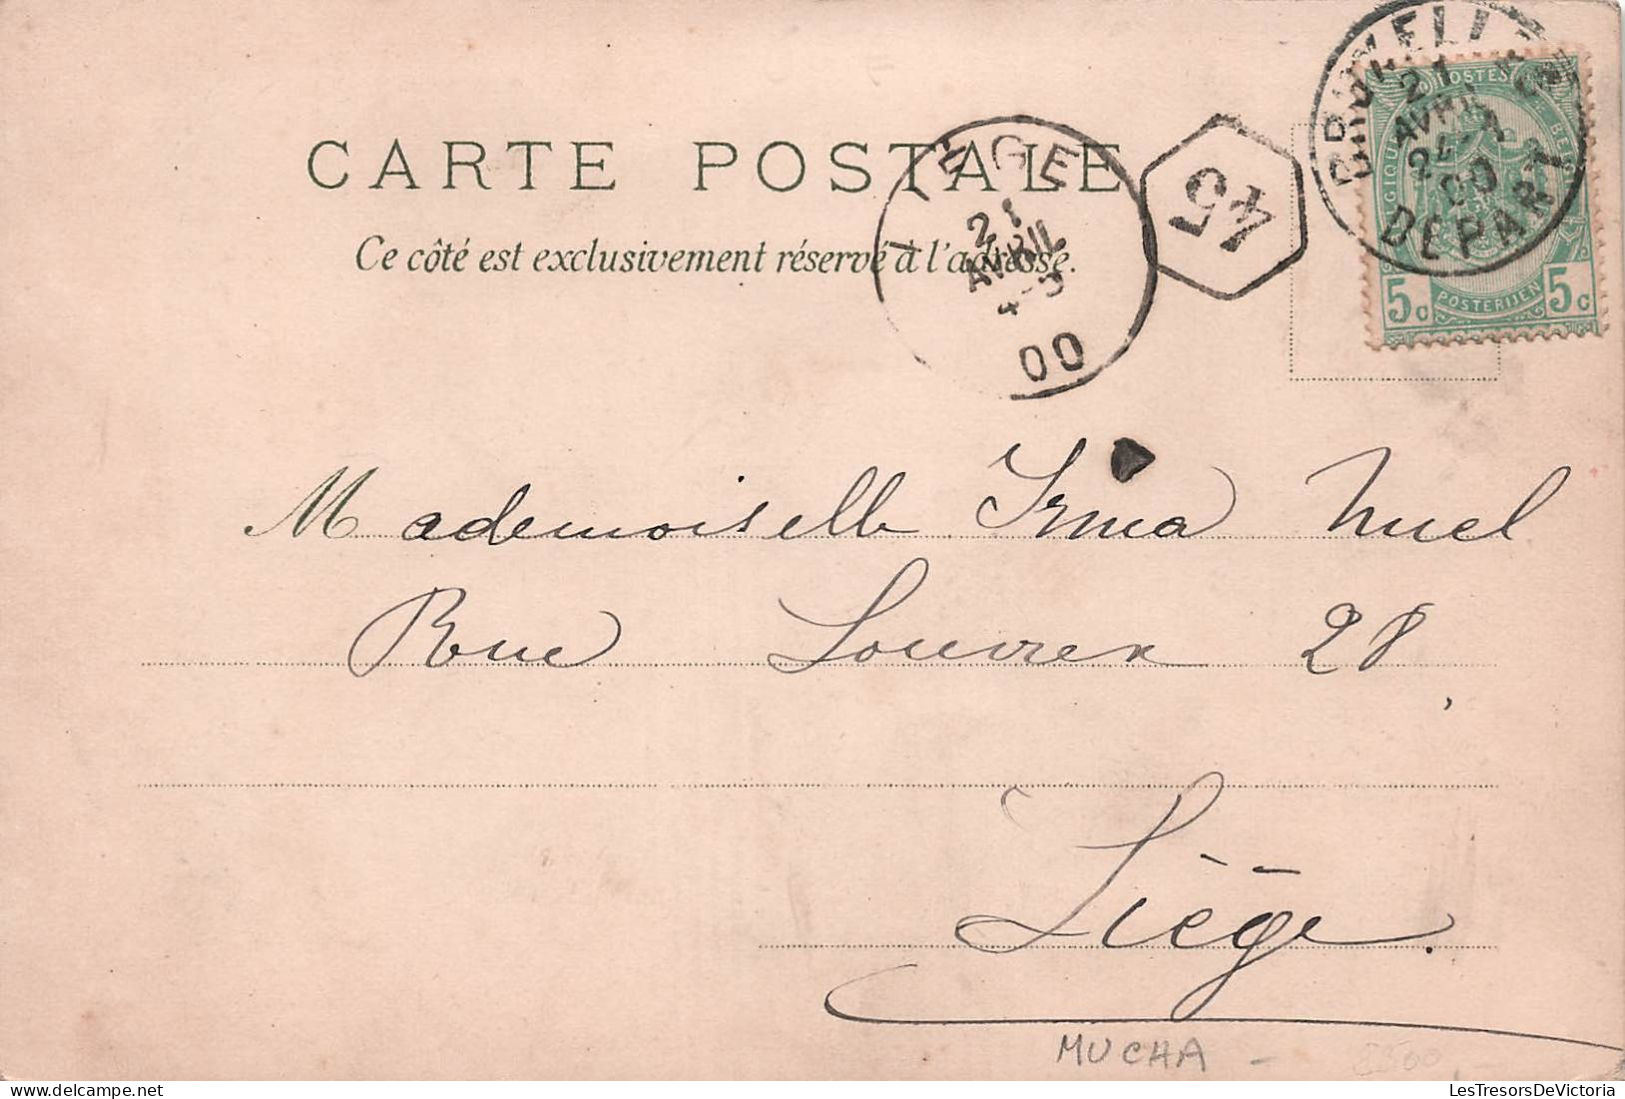 CARTE POSTALE
Ce côté est exclusivement réservé à l'adresse.
IEGE
21
AVRIL
4-5
00
45
BRUXELL
21
AVRIL
00
DEPART
POSTES
5c POSTERIJEN 5c
Mademoiselle Irma Nuel
Rue Louvrex 28,
Liège.
MUCHA -
LesTresorsDeVictoria